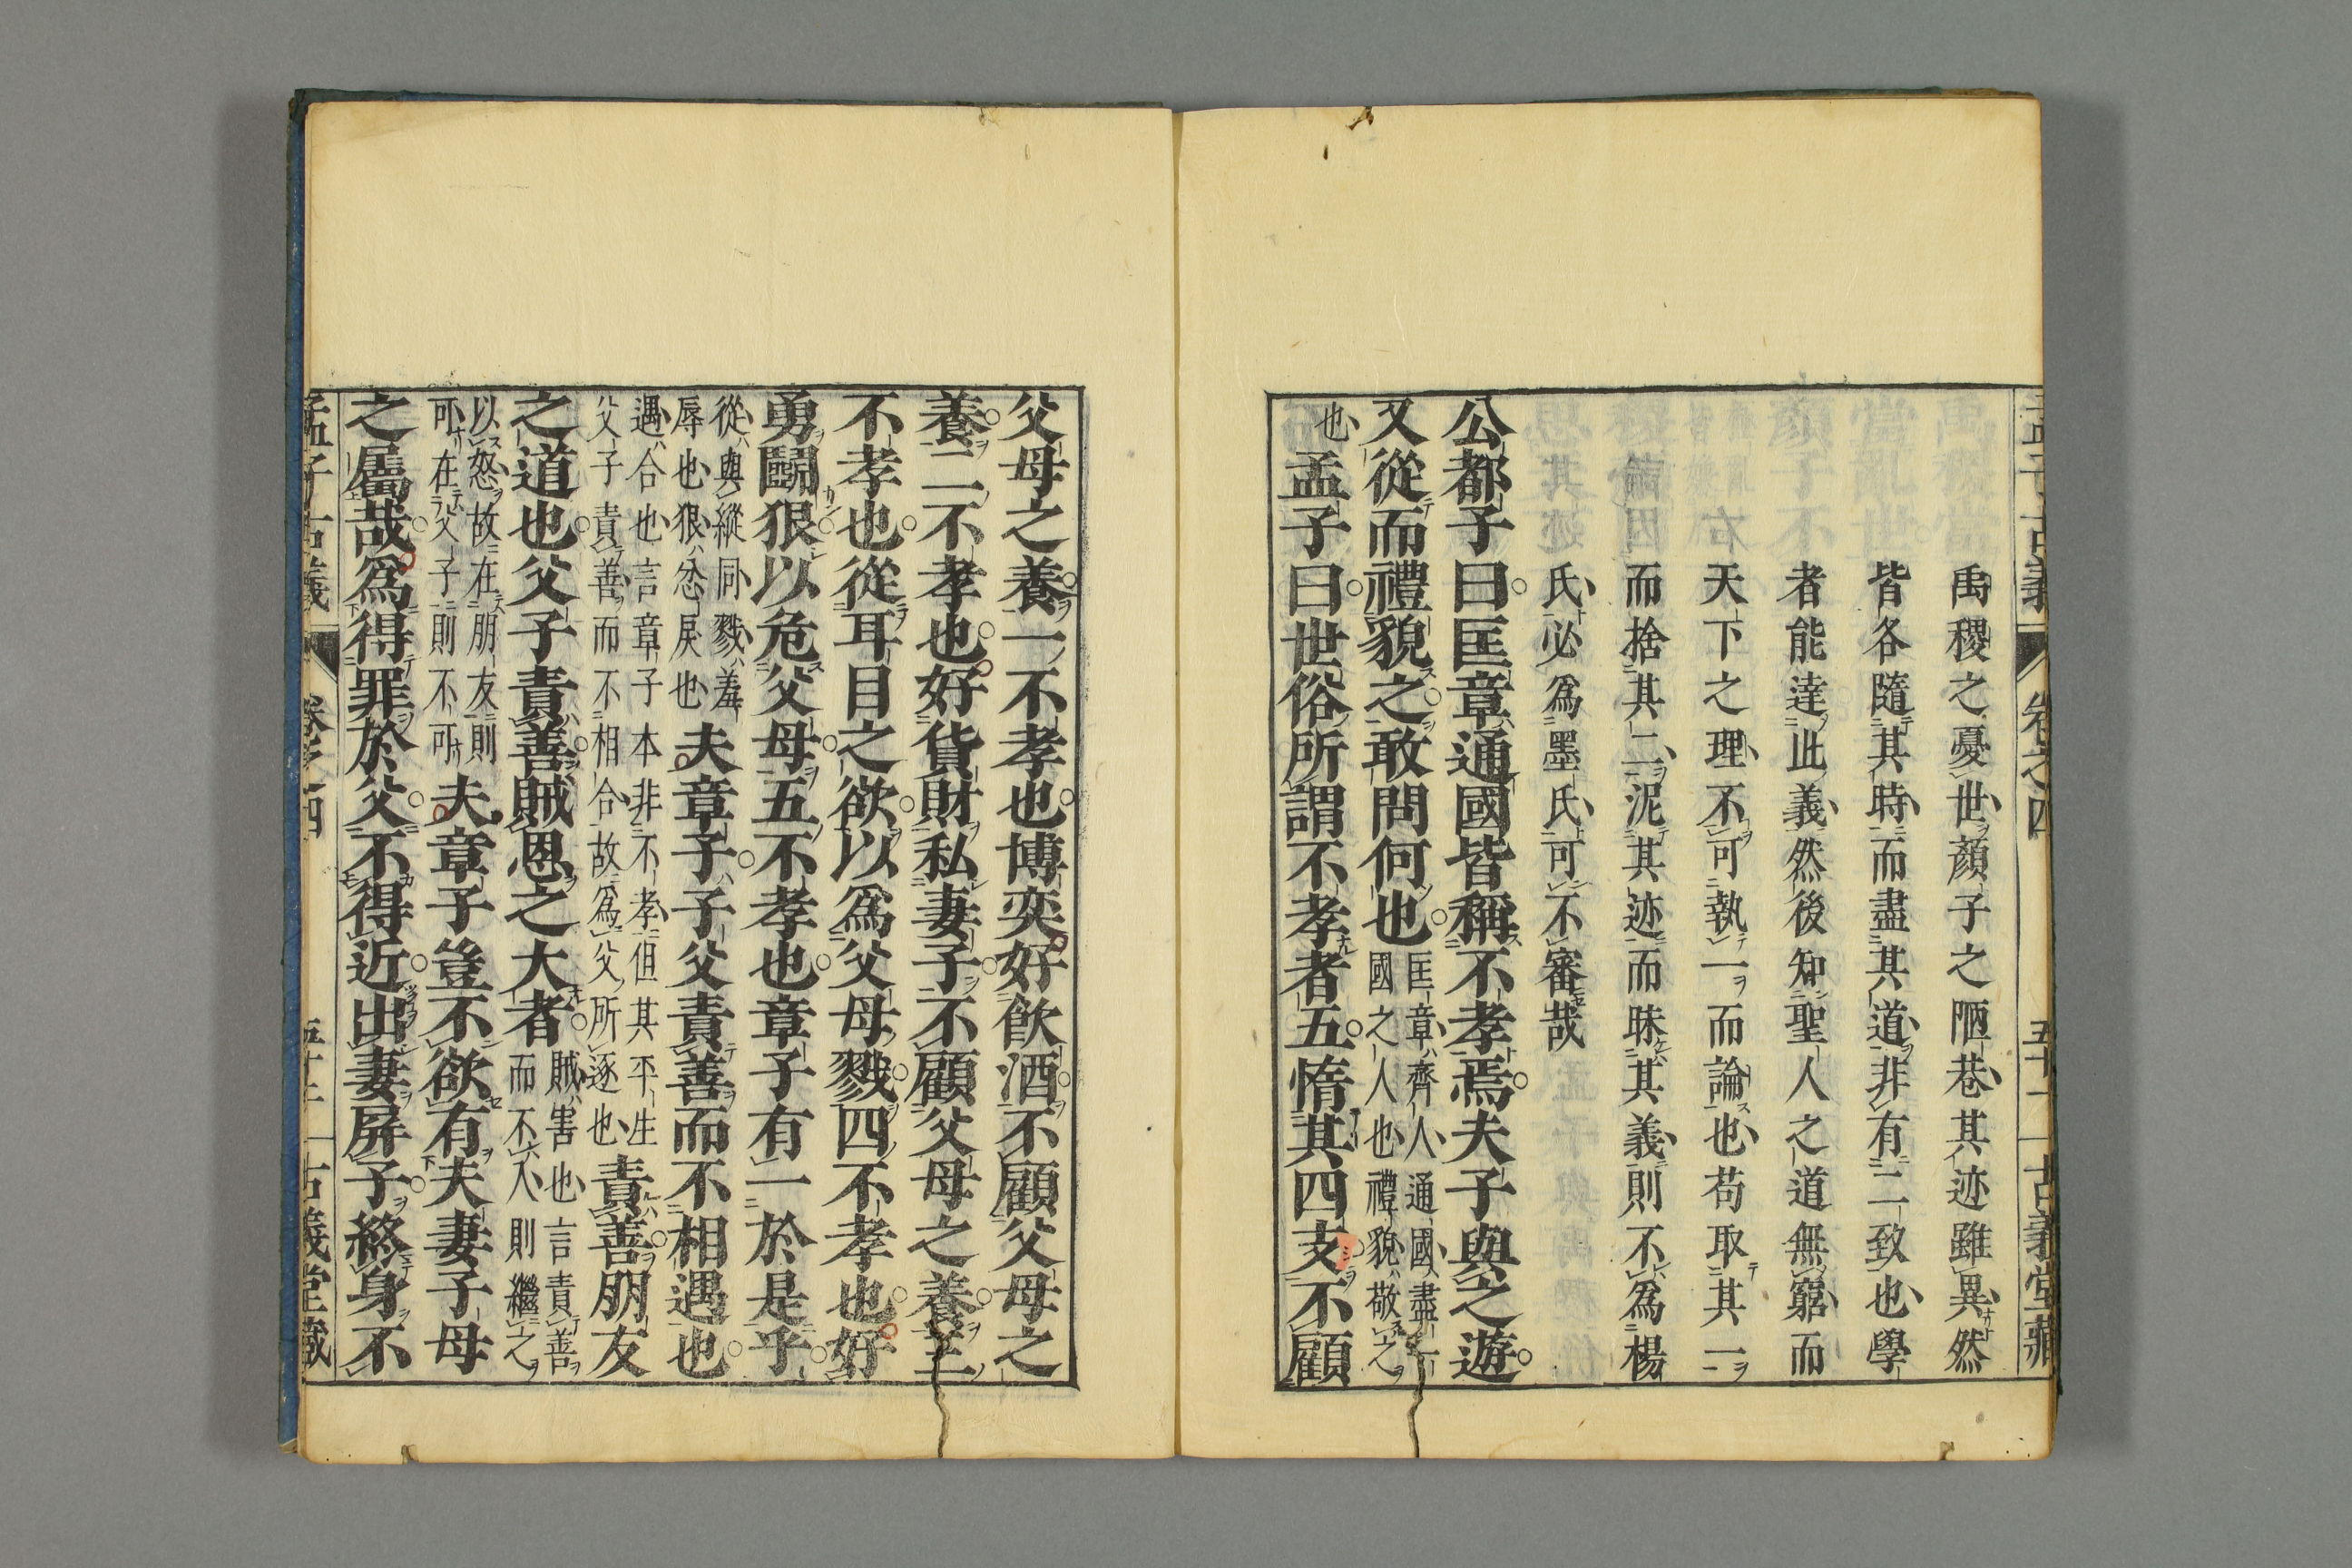 禹稷之憂世顏子之陋巷其迹雖異然
皆各隨其時而盡其道非有二致也學
者能達此義然後知聖人之道無窮而
天下之理不可執一而論也苟取其一
而捨其二泥其迹而昧其義則不為楊
氏必為墨氏可不審哉
公都子曰匡章通國皆稱不孝焉夫子與之遊
又從而禮貌之敢問何也匡章齊人通國盡一國之人也禮貌敬之
也孟子曰世俗所謂不孝者五惰其四支不顧
父母之養一不孝也博奕好飲酒不顧父母之
養二不孝也好貨財私妻子不顧父母之養三
不孝也從耳目之欲以為父母戮四不孝也好
勇鬭狠以危父母五不孝也章子有一於是乎
從與縱同戮羞辱也狠忿戾也夫章子子父責善而不相遇也
遇合也言章子本非不孝但其平生父子責善而不相合故為父所逐也責善朋友
之道也父子責善賊恩之大者賊害也言責善而不入則繼之
以怒故在朋友則可在父子則不可夫章子豈不欲有夫妻子母
之屬哉為得罪於父不得近出妻屏子終身不
孟子古義 卷之四 古義堂藏